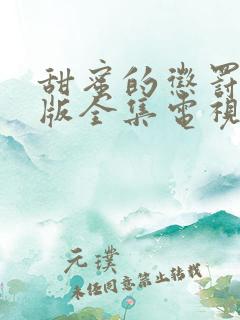 甜蜜的懲罰
版全集電視
元璞
未经同意禁止转载